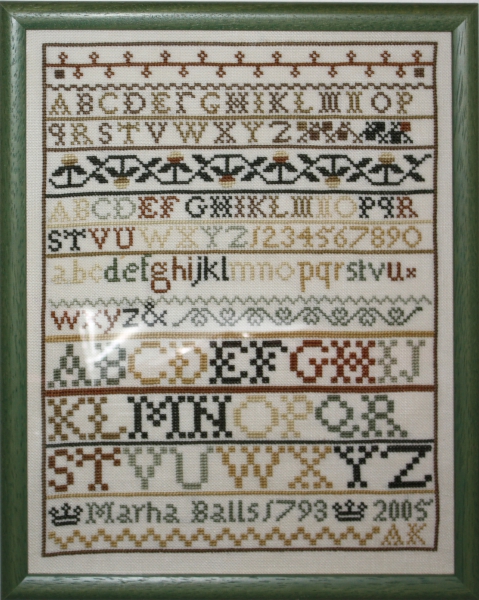 ABCDEFGHIKLMNOP
qRSTVWXYZ
ABCDEFGHIKLMNOPqR
STVUWXYZ1234567890
abcdefghijklmnopqrstvux
wxyz&
ABCDEFGHIJ
KLMNOPQR
STVUWXYZ
Marha Balls 1793 2005
AK